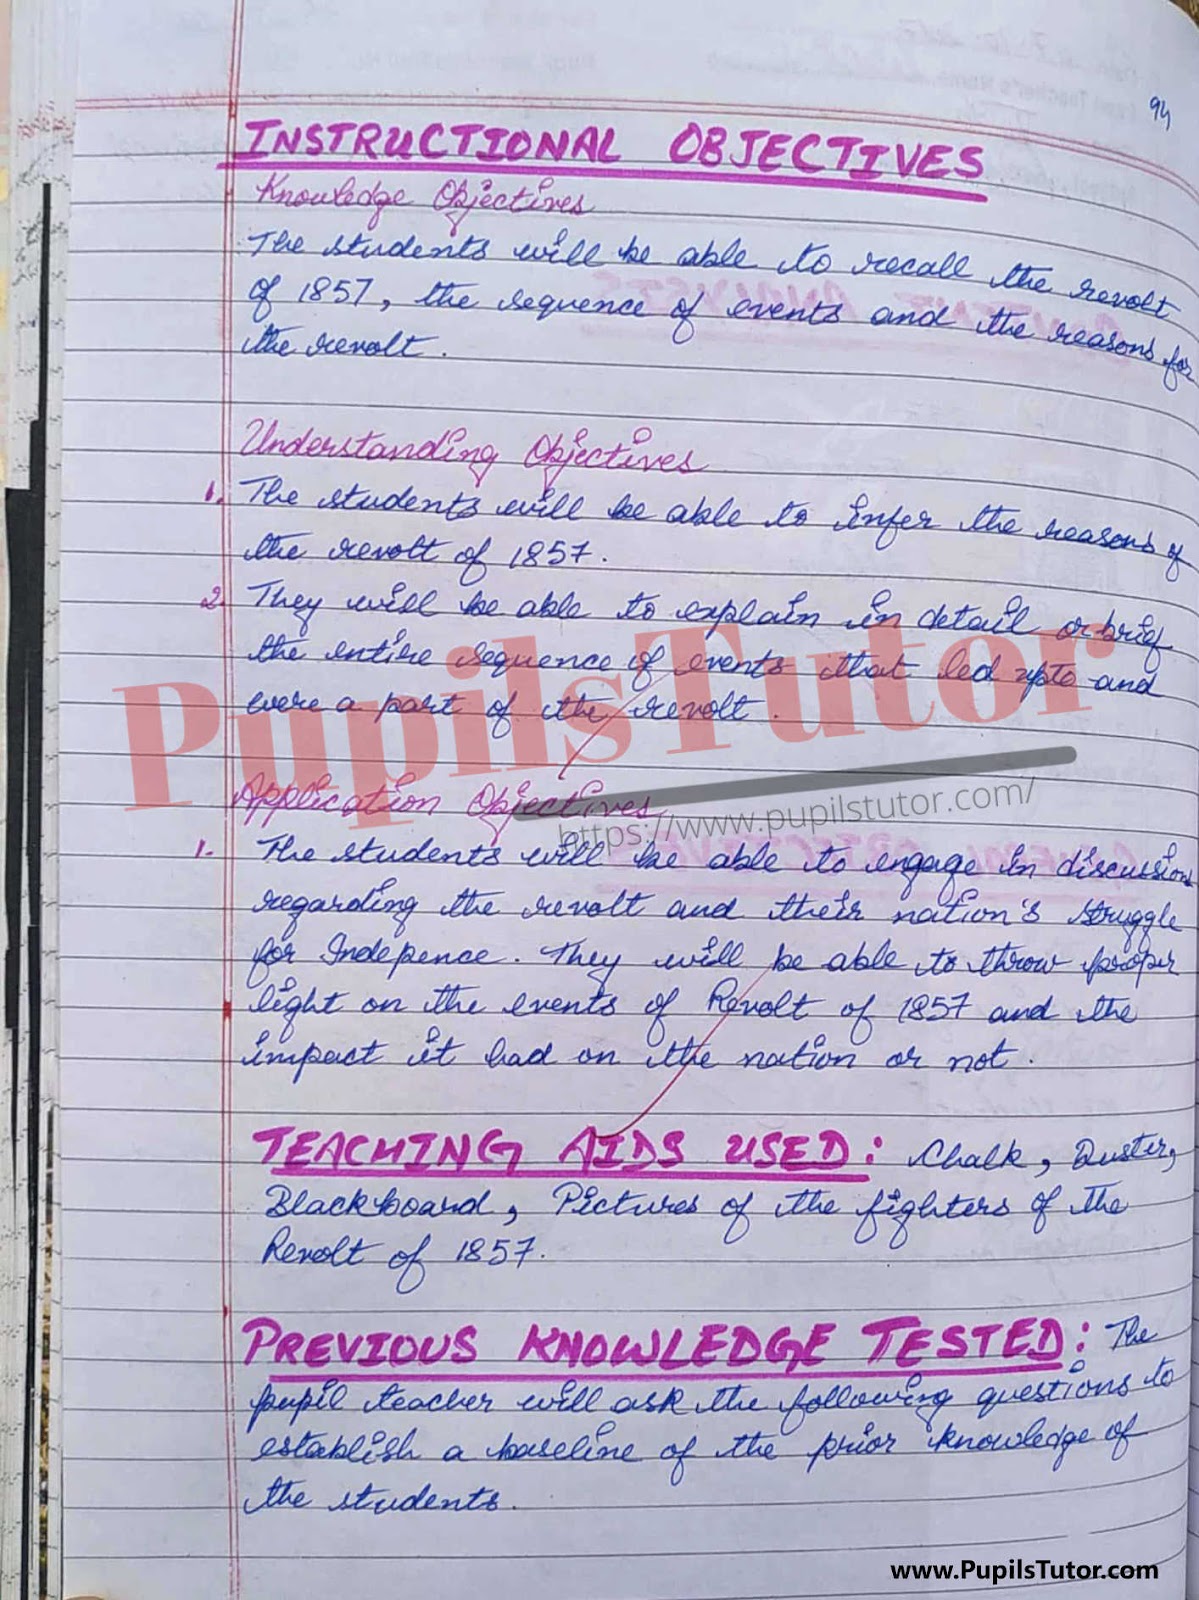 94
INSTRUCTIONAL OBJECTIVES
Knowledge Objectives
The students will be able to recall the revolt
of 1857, the sequence of events and the reasons for
the revolt.
Understanding Objectives
1. The students will be able to infer the reasons of
the revolt of 1857.
2. They will be able to explain in detail or brief
the entire sequence of events that led upto and
were a part of the revolt.
PupilsTutor
Application Objectives
https://www.pupilstutor.com/
1. The students will be able to engage in discussions
regarding the revolt and their nation's struggle
for Indepence. They will be able to throw proper
light on the events of Revolt of 1857 and the
impact it had on the nation or not.
TEACHING AIDS USED: Chalk, Duster,
Blackboard, Pictures of the fighters of the
Revolt of 1857.
PREVIOUS KNOWLEDGE TESTED: The
pupil teacher will ask the following questions to
establish a baseline of the prior knowledge of
the students.
www.PupilsTutor.com